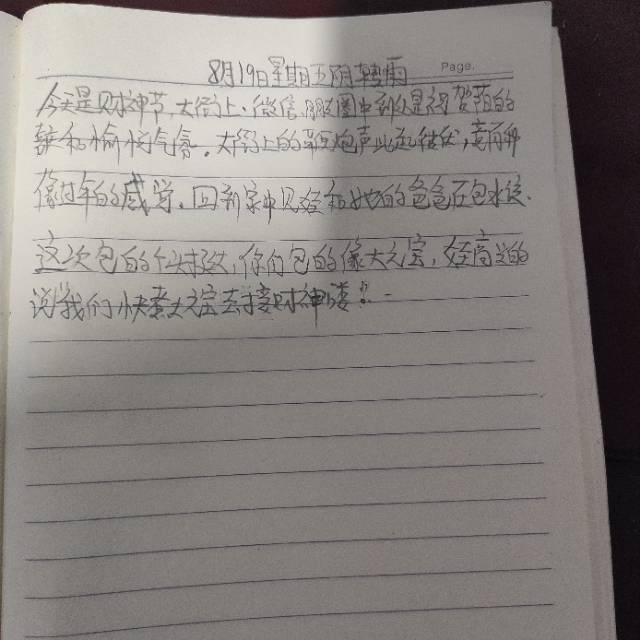 8月19日星期五阴转雨 Page.
今天是财神节,大街上、微信朋友圈中到处是祝贺节日的
和愉快气氛。大街上的鞭炮声此起彼伏,
像过年的感觉。回到家中见 和她的爸爸在包水饺
这次包的个 ,你们包的像大元宝, 高兴的
说我们快煮大元宝去接财神喽!